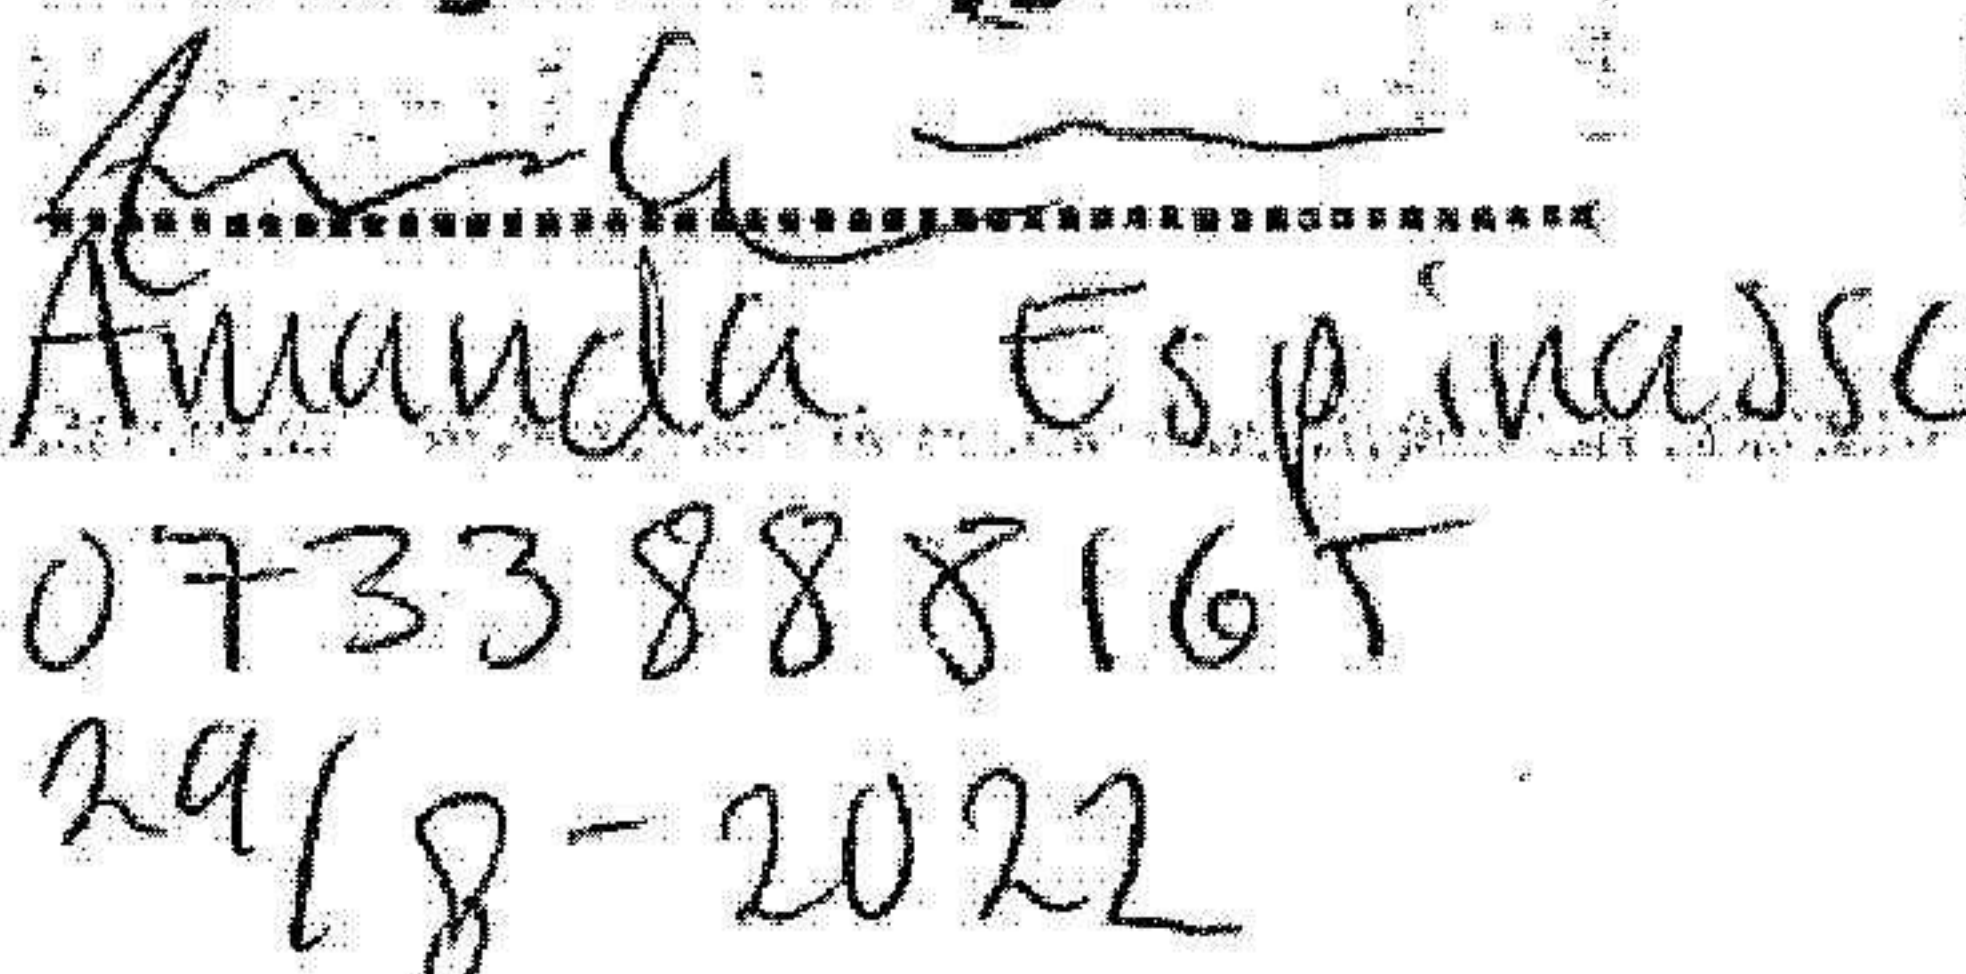 Amanda Espinasse
0733888165
29/8-2022